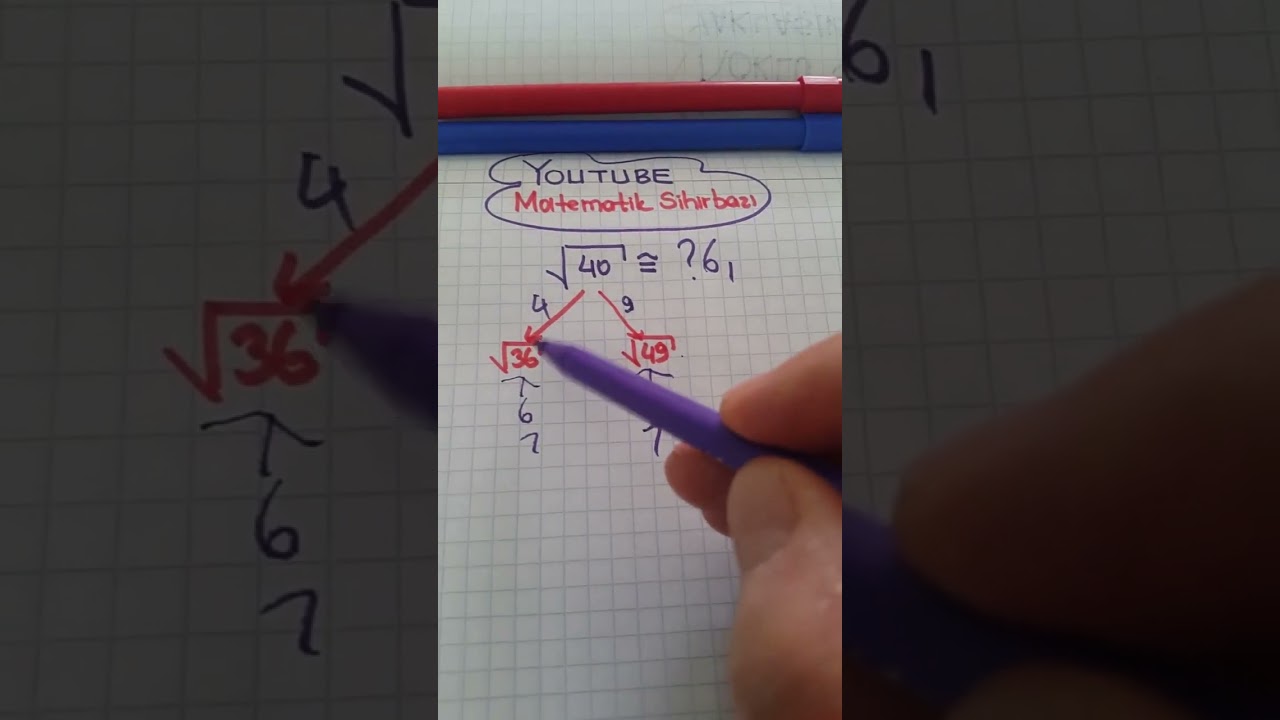 YOUTUBE
Matematik Sihirbazı
√40 ≅ ?6,
4 9
√36 √49
6
7 7